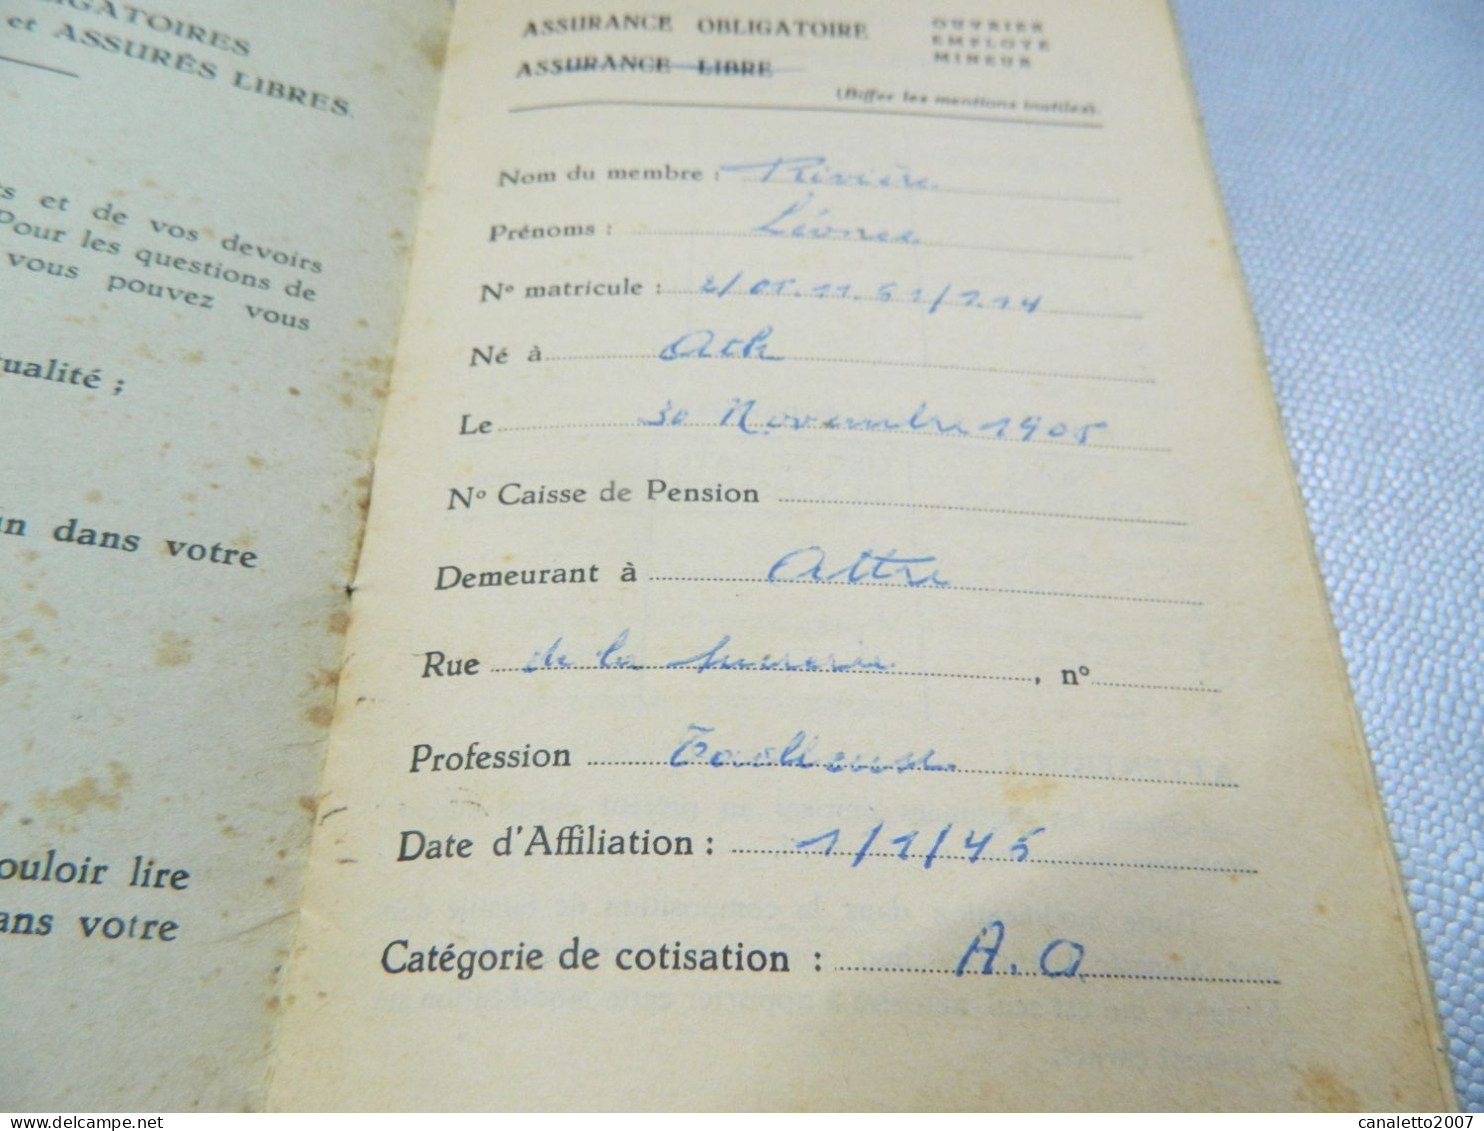 LIGATOIRES
et ASSURÉS LIBRES.
ts et de vos devoirs
Pour les questions de
vous pouvez vous
tualité ;
un dans votre
ouloir lire
ans votre
ASSURANCE OBLIGATOIRE
ASSURANCE LIBRE
OUVRIER
EMPLOYE
MINEUR
(Biffer les mentions inutiles).
Nom du membre : Rivière
Prénoms : Léonce
Nº matricule : 2/05.11.51/1.14
Né à Ath
Le 30 Novembre 1905
Nº Caisse de Pension
Demeurant à Attre
Rue de la Sucrerie, nº
Profession
Date d'Affiliation : 1/1/45
Catégorie de cotisation : A.O
www.delcampe.net
canaletto2007